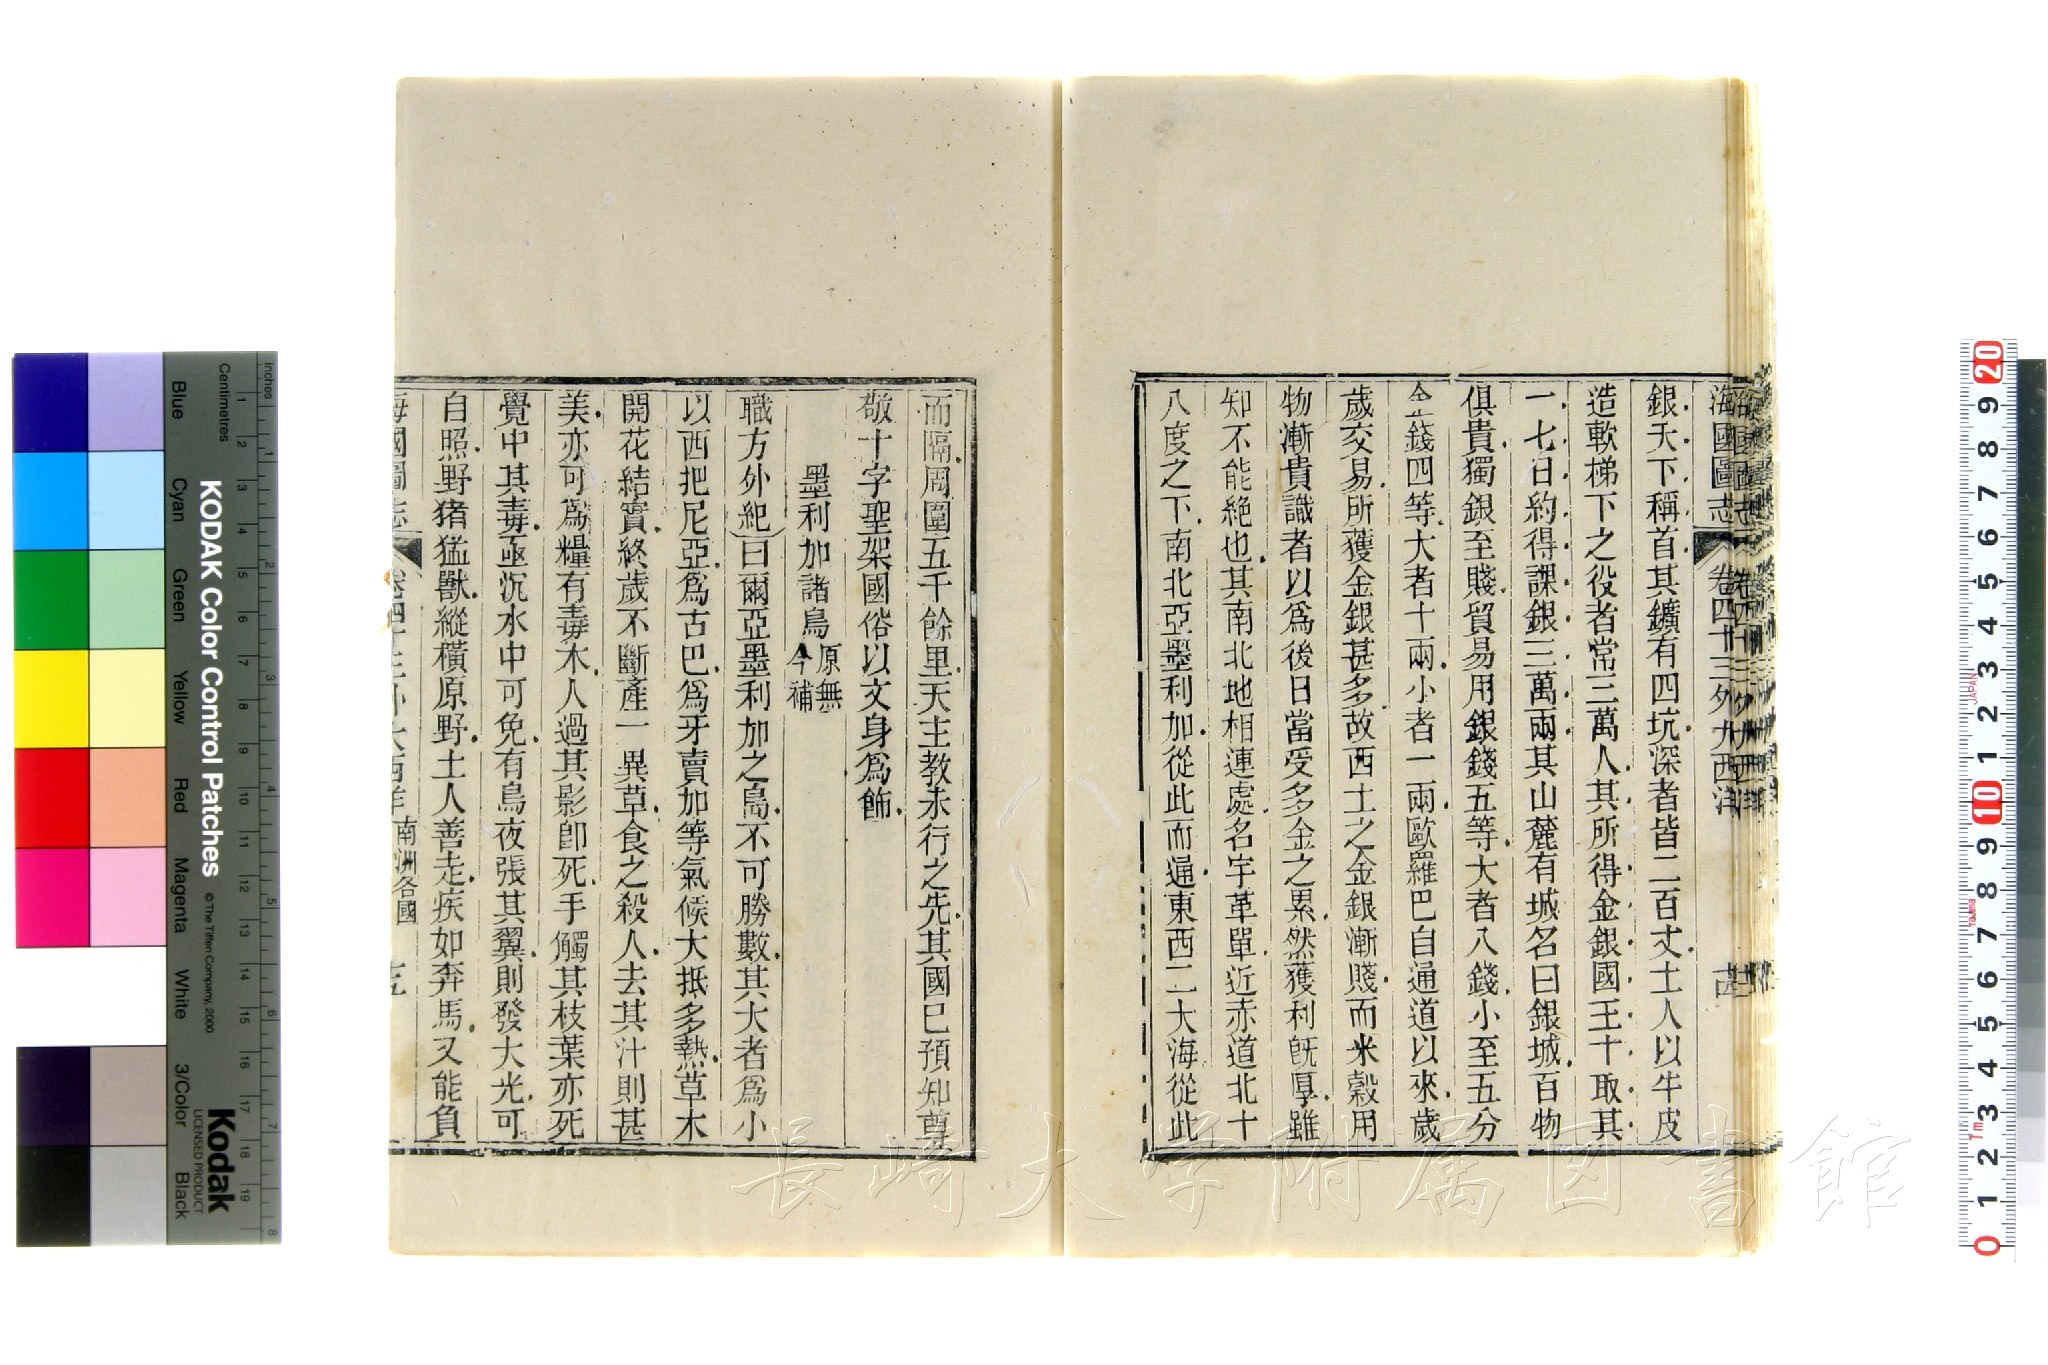 海國圖志
卷四十三
銀天下稱首其鑛有四坑深者皆二百丈土人以牛皮
造軟梯下之役者常三萬人其所得金銀國王十取其
一七日約得課銀三萬兩其山麓有城名曰銀城百物
俱貴獨銀至賤貿易用銀錢五等大者八錢小至五分
金錢四等大者十兩小者一兩歐羅巴自通道以來歲
歲交易所獲金銀甚多故西土之金銀漸賤而米穀用
物漸貴識者以為後日當受多金之累然獲利旣厚雖
知不能絶也其南北地相連處名宇革單近赤道北十
八度之下南北亞墨利加從此而通東西二大海從此
而隔周圍五千餘里天主教未行之先其國已預知尊
敬十字聖架國俗以文身為飾
墨利加諸島 原無今補
職方外紀曰爾亞墨利加之島不可勝數其大者為小
以西把尼亞為古巴為牙賣加等氣候大抵多熱草木
開花結實終歲不斷產一異草食之殺人去其汁則甚
美亦可為糧有毒木人過其影卽死手觸其枝葉亦死
覺中其毒亟沉水中可免有鳥夜張其翼則發大光可
自照野猪猛獸縱橫原野土人善走疾如奔馬又能負
海國圖志
南洲各國
KODAK Color Control Patches
© The Tiffen Company, 2000
Kodak
LICENSED PRODUCT
Centimetres
Inches
Blue
Cyan
Green
Yellow
Red
Magenta
White
3/Color
Black
長崎大学附属図書館